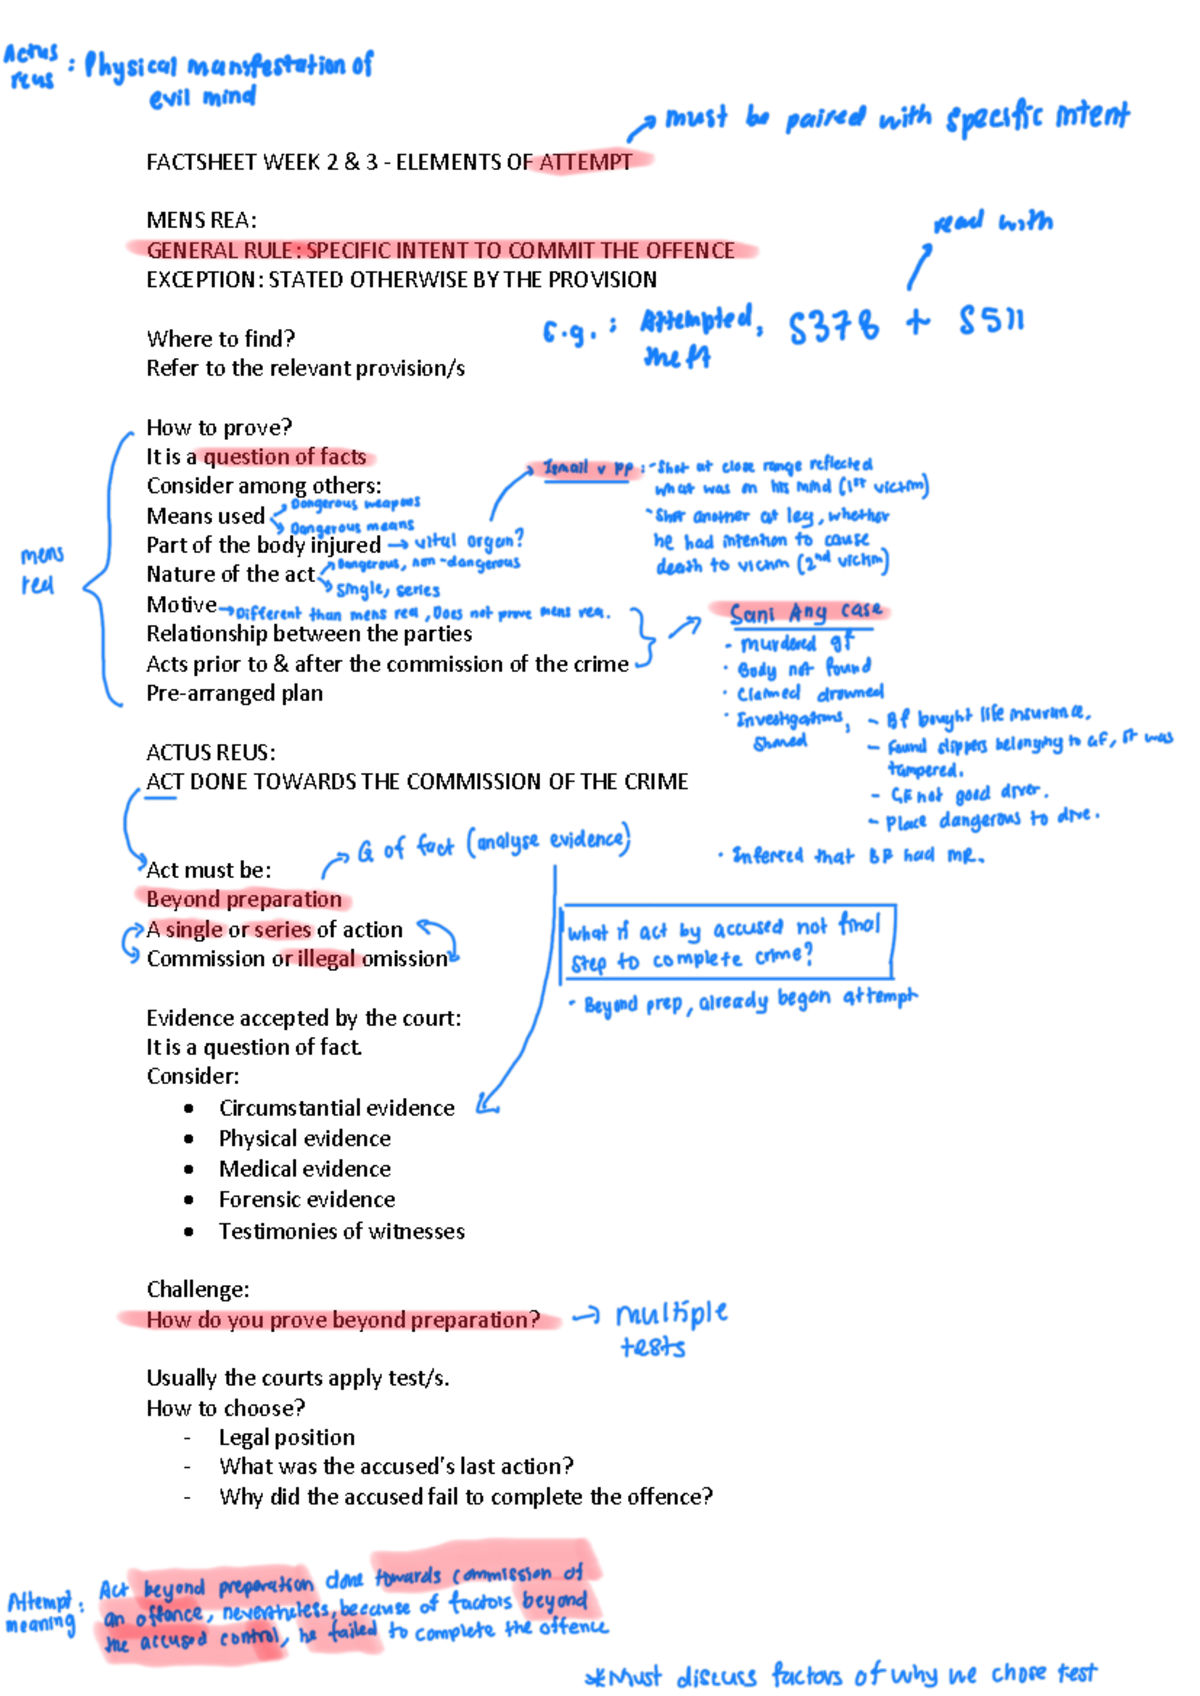 Actus reus : Physical manifestation of
evil mind
must be paired with specific intent
FACTSHEET WEEK 2 & 3 - ELEMENTS OF ATTEMPT
MENS REA:
read with
GENERAL RULE: SPECIFIC INTENT TO COMMIT THE OFFENCE
EXCEPTION: STATED OTHERWISE BY THE PROVISION
E.g. : Attempted theft, S378 + S511
Where to find?
Refer to the relevant provision/s
mens rea
How to prove?
It is a question of facts
Consider among others:
Means used
Dangerous weapons
Dangerous means
Part of the body injured → vital organ?
Nature of the act
Dangerous, non-dangerous
single, series
Motive → Different than mens rea, Does not prove mens rea.
Relationship between the parties
Acts prior to & after the commission of the crime
Pre-arranged plan
Ismail v PP : - Shot at close range reflected
what was on his mind (1st victim)
- Shot another at leg, whether
he had intention to cause
death to victim (2nd victim)
Sani Any case
- murdered gf
· Body not found
· Claimed drowned
· Investigations, showed
- BF bought life insurance.
- Found slippers belonging to GF, it was
tampered.
- GF not good diver.
- Place dangerous to dive.
· Inferred that BF had MR.
ACTUS REUS:
ACT DONE TOWARDS THE COMMISSION OF THE CRIME
Act must be:
Q of fact (analyse evidence)
Beyond preparation
A single or series of action
Commission or illegal omission
What if act by accused not final
step to complete crime?
· Beyond prep, already began attempt
Evidence accepted by the court:
It is a question of fact.
Consider:
• Circumstantial evidence
• Physical evidence
• Medical evidence
• Forensic evidence
• Testimonies of witnesses
Challenge:
How do you prove beyond preparation? → multiple
tests
Usually the courts apply test/s.
How to choose?
- Legal position
- What was the accused's last action?
- Why did the accused fail to complete the offence?
Attempt meaning : Act beyond preparation done towards commission of
an offence, nevertheless, because of factors beyond
the accused control, he failed to complete the offence
*Must discuss factors of why we chose test